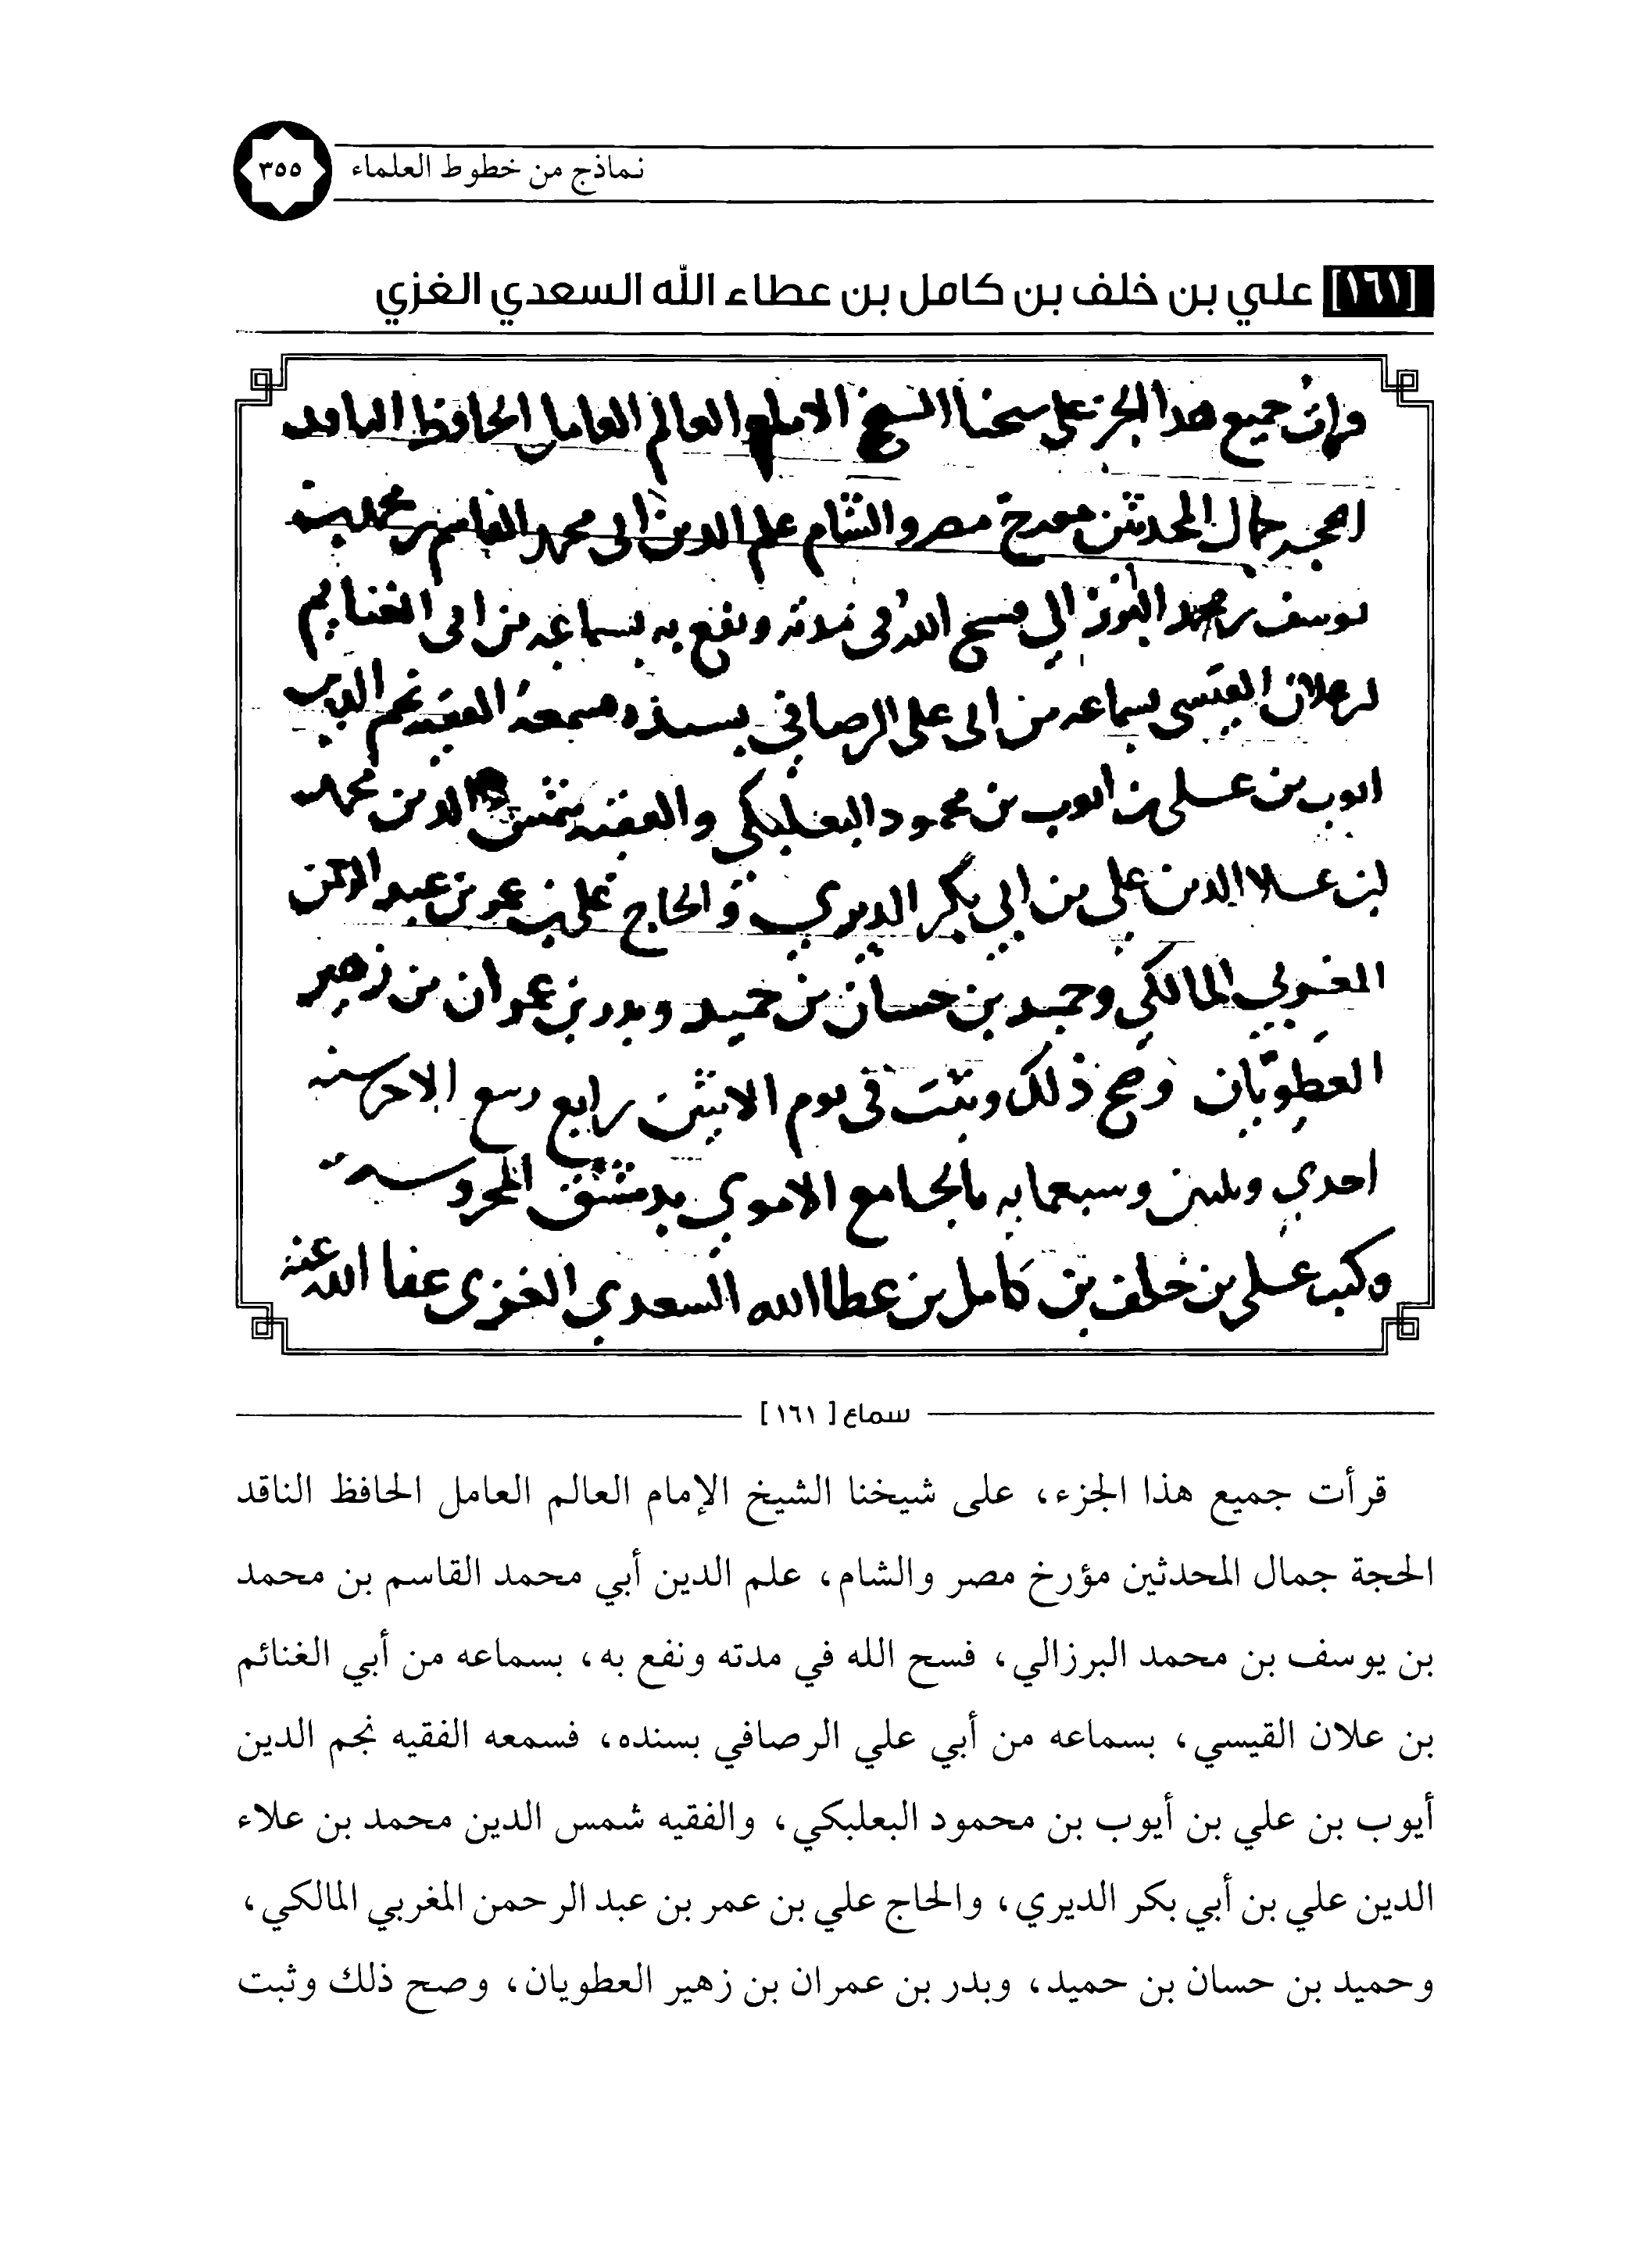 نماذج من خطوط العلماء
٣٥٥
[١٦١] علي بن خلف بن كامل بن عطاء الله السعدي الغزي
قرات جميع هذا الجز على شيخنا الشيخ الامام العالم العامل الحافظ الناقد
الحجه جمال المحدثين مورخ مصر والشام علم الدين ابي محمد القاسم بن محمد بن
يوسف بن محمد البرزالي فسح الله في مدته ونفع به بسماعه من ابي الغنايم
بن علان القيسي بسماعه من ابي علي الرصافي بسنده فسمعه الفقيه نجم الدين
ايوب بن علي بن ايوب بن محمود البعلبكي والفقيه شمس الدين محمد
ابن علا الدين علي بن ابي بكر الديري والحاج علي بن عمر بن عبد الرحمن
المغربي المالكي وحميد بن حسان بن حميد وبدر بن عمران بن زهير
العطويان وصح ذلك وثبت في يوم الاثنين رابع ربيع الاخر سنه
احدي وثلثين وسبعمايه بالجامع الاموي بدمشق المحروسه
وكتب علي بن خلف بن كامل بن عطا الله السعدي الغزي عفا الله عنه
سماع [١٦١]
قرأت جميع هذا الجزء، على شيخنا الشيخ الإمام العالم العامل الحافظ الناقد
الحجة جمال المحدثين مؤرخ مصر والشام، علم الدين أبي محمد القاسم بن محمد
بن يوسف بن محمد البرزالي، فسح الله في مدته ونفع به، بسماعه من أبي الغنائم
بن علان القيسي، بسماعه من أبي علي الرصافي بسنده، فسمعه الفقيه نجم الدين
أيوب بن علي بن أيوب بن محمود البعلبكي، والفقيه شمس الدين محمد بن علاء
الدين علي بن أبي بكر الديري، والحاج علي بن عمر بن عبد الرحمن المغربي المالكي،
وحميد بن حسان بن حميد، وبدر بن عمران بن زهير العطويان، وصح ذلك وثبت